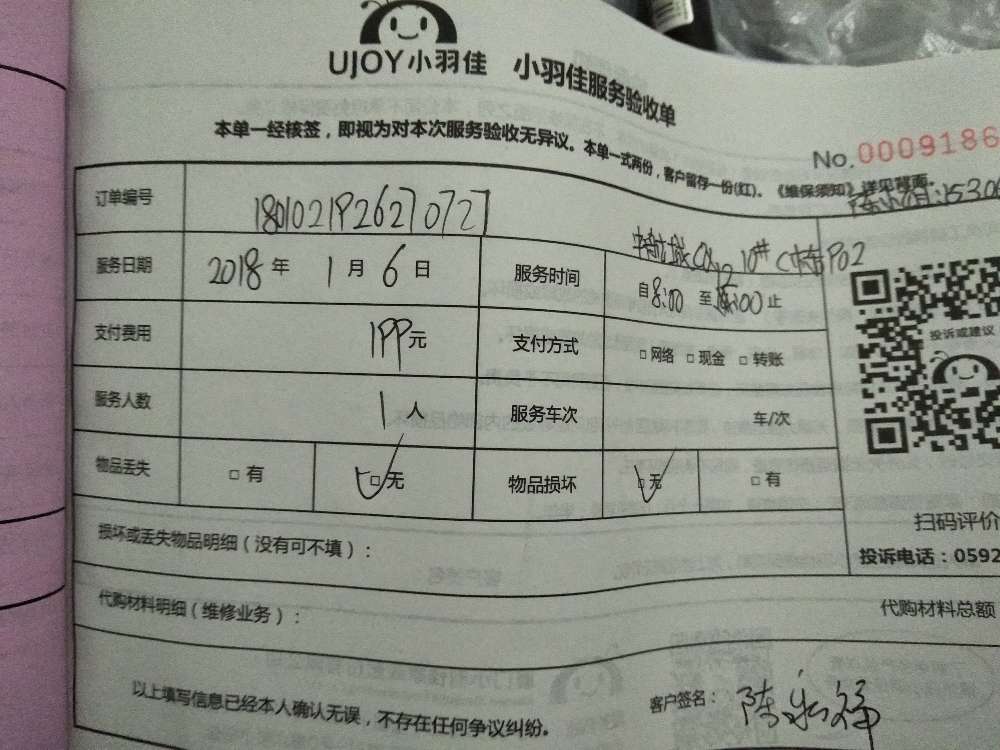 UJOY小羽佳 小羽佳服务验收单
本单一经核签，即视为对本次服务验收无异议。本单一式两份，客户留存一份(红)。《维保须知》详见背面。
No.0009186
订单编号 180102192627072
服务日期 2018年 1月 6日 服务时间 自8:00至12:00止
支付费用 199元 支付方式 □网络 □现金 □转账
服务人数 1人 服务车次 车/次
物品丢失 □有 □无 物品损坏 □无 □有
投诉或建议
扫码评价
投诉电话：0592
损坏或丢失物品明细（没有可不填）：
代购材料明细（维修业务）： 代购材料总额
以上填写信息已经本人确认无误，不存在任何争议纠纷。 客户签名：